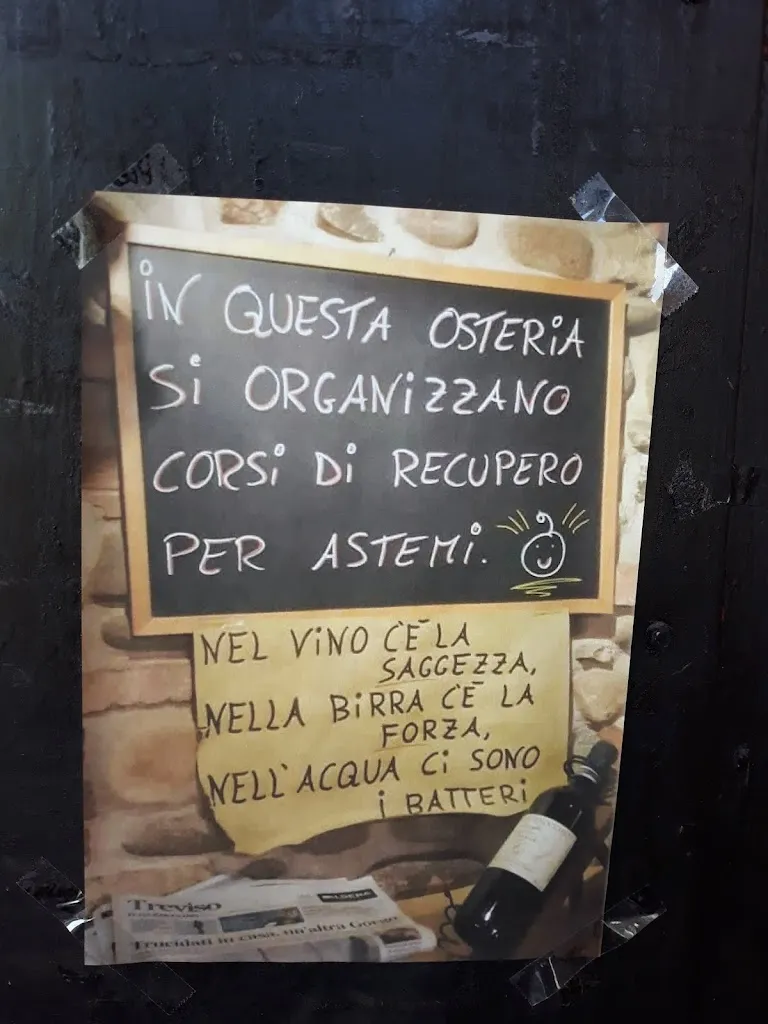 iN QUESTA OSTERiA
Si ORGANiZZANO
CORSi Di RECUPERO
PER ASTEMi.
NEL ViNO C'È LA
SAGGEZZA,
NELLA BiRRA C'È LA
FORZA,
NELL'ACQUA Ci SONO
i BATTERi
Treviso
Trucidati in casa, un'altra Gorgo